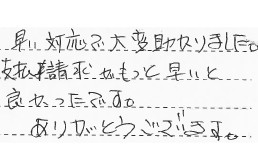 早い対応で大変助かりました。
支払請求がもっと早いと
良かったです。
ありがとうございます。